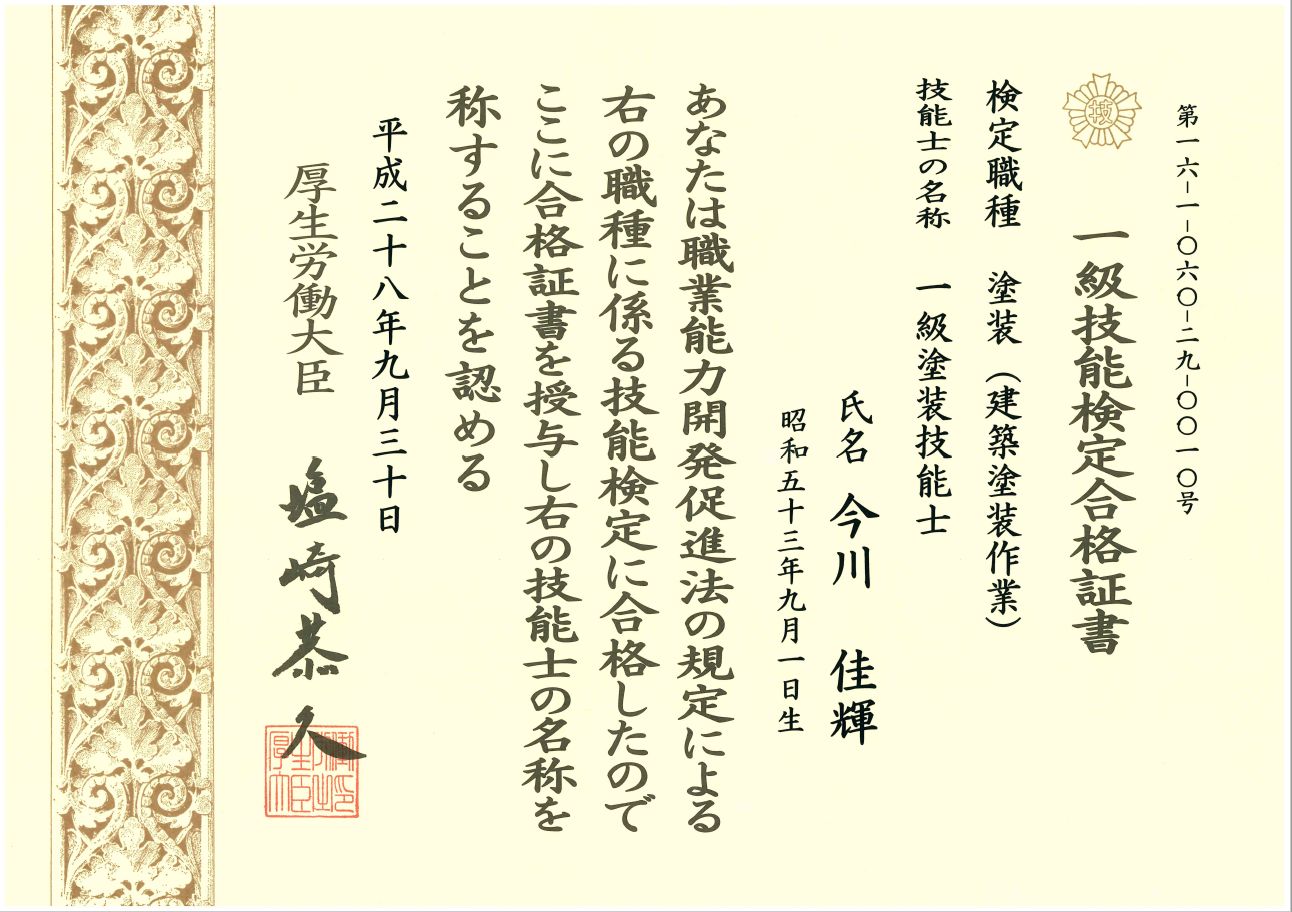 第一六-一-〇六〇-二九-〇〇一〇号
技
一級技能検定合格証書
検定職種 塗装(建築塗装作業)
技能士の名称 一級塗装技能士
氏名 今川 佳輝
昭和五十三年九月一日生
あなたは職業能力開発促進法の規定による
右の職種に係る技能検定に合格したので
ここに合格証書を授与し右の技能士の名称を
称することを認める
平成二十八年九月三十日
厚生労働大臣 塩崎恭久